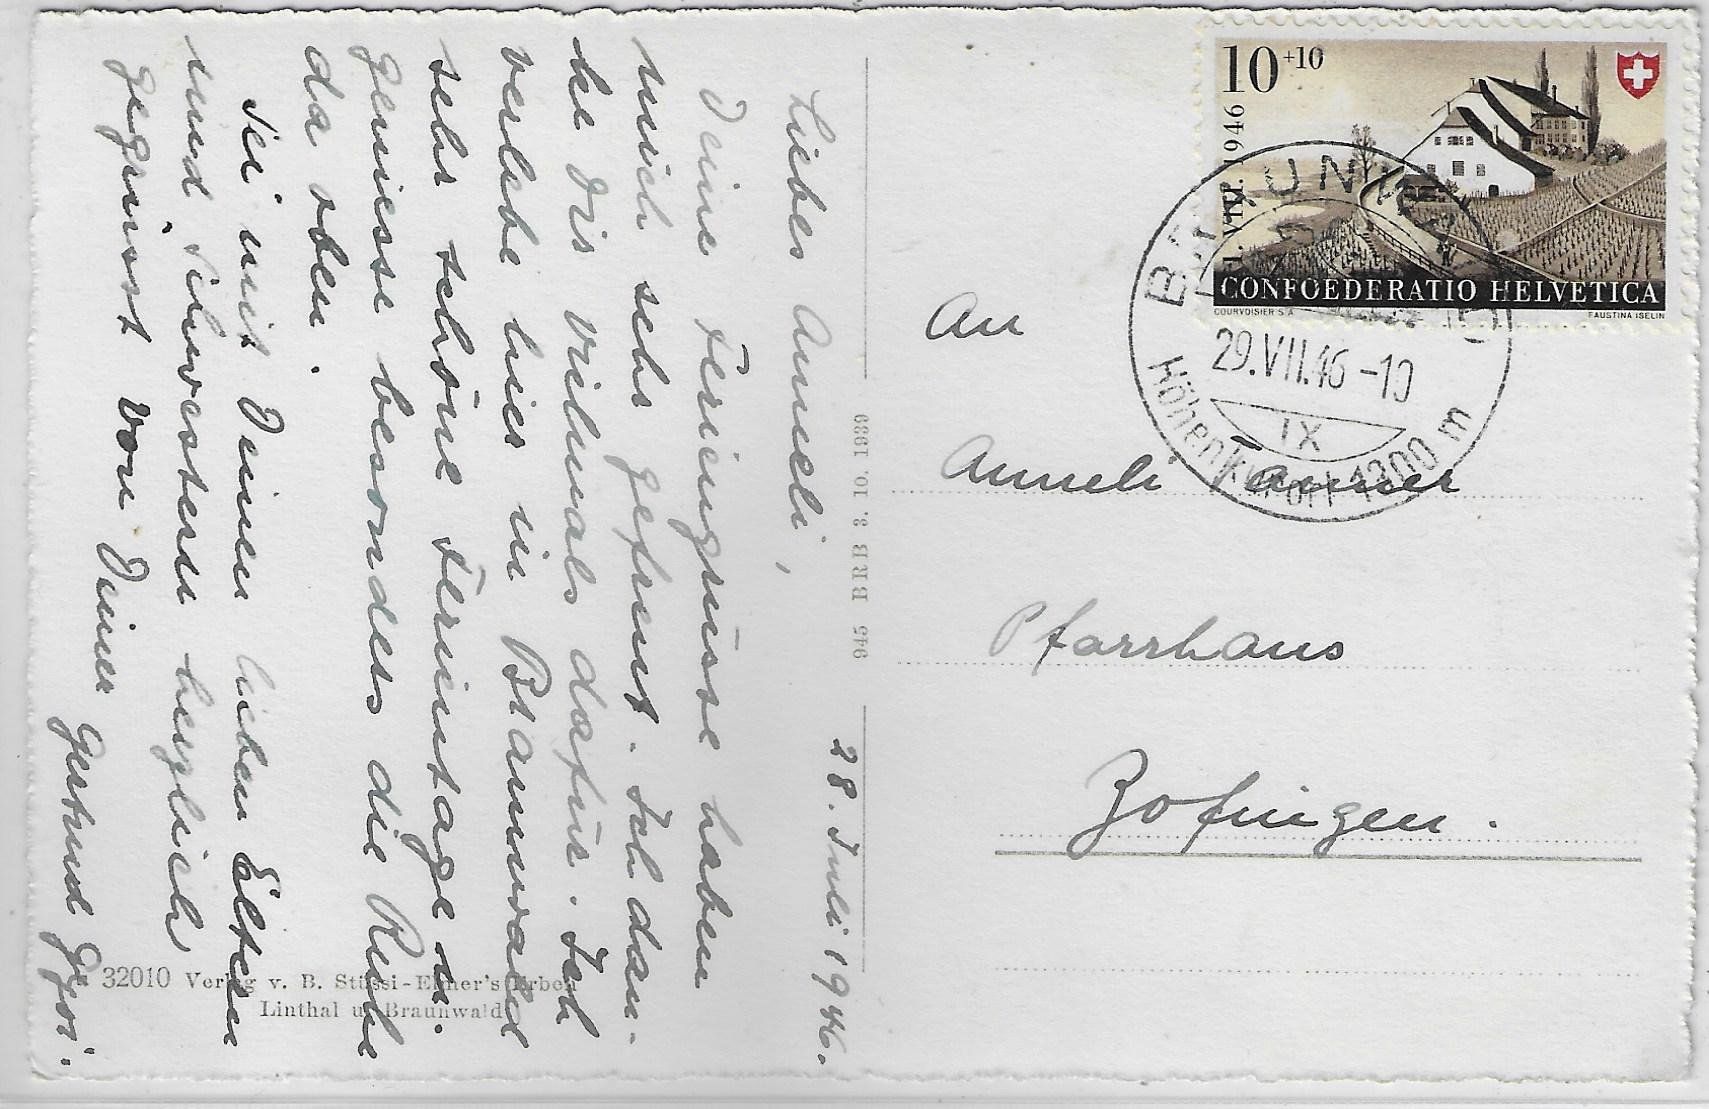 28. Juli 1946.
Liebes Anneli,
Deine Feriengrüsse haben
mich sehr gefreut. Ich dan-
ke Dir vielmals dafür. Ich
verlebe hier in Braunwald
sehr schöne Ferientage u.
geniesse besonders die Ruhe
da oben.
Sei mit Deinen lieben Eltern
und Schwestern herzlich
gegrüsst von Deiner
Gertrud Gysi.
32010 Verlag v. B. Stüssi-Elmer's Erben
Linthal u. Braunwald
945 BRB 3. 10. 1939
10+10
1. VIII. 1946
CONFOEDERATIO HELVETICA
COURVOISIER S.A.
FAUSTINA ISELIN
BRAUNWALD
29.VII.46-10
IX
Höhenkurort 1300 m
An
Anneli Tanner
Pfarrhaus
Zofingen.